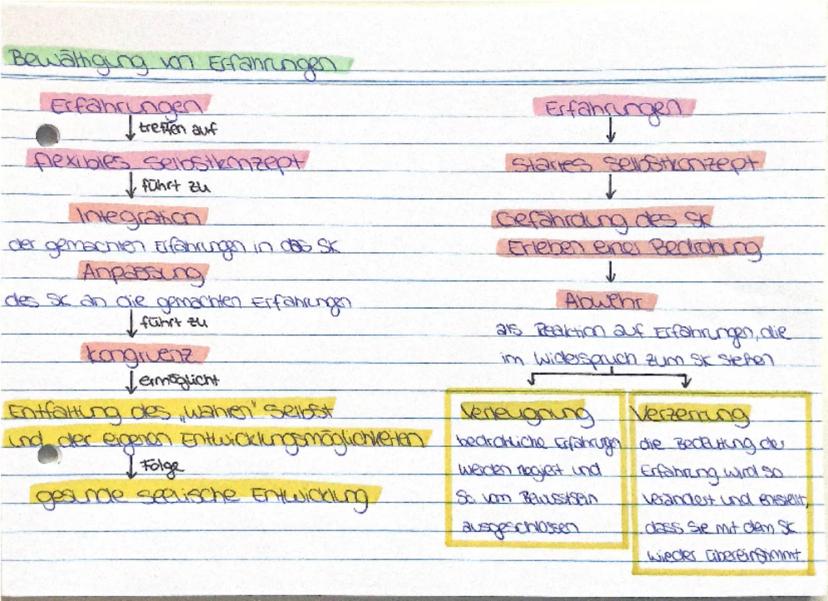 Bewältigung von Erfahrungen
Erfahrungen
treffen auf
flexibles Selbstkonzept
führt zu
Integration
der gemachten Erfahrungen in das SK
Anpassung
des SK an die gemachten Erfahrungen
führt zu
Kongruenz
ermöglicht
Entfaltung des „wahren" Selbst
und der eigenen Entwicklungsmöglichkeiten
Folge
gesunde seelische Entwicklung
Erfahrungen
starres Selbstkonzept
Gefährdung des SK
Erleben einer Bedrohung
Abwehr
als Reaktion auf Erfahrungen, die
im Widerspruch zum SK stehen
Verleugnung
bedrohliche Erfahrungen
werden negiert und
so vom Bewusstsein
ausgeschlossen
Verzerrung
die Bedeutung der
Erfahrung wird so
verändert und entstellt,
dass sie mit dem SK
wieder übereinstimmt